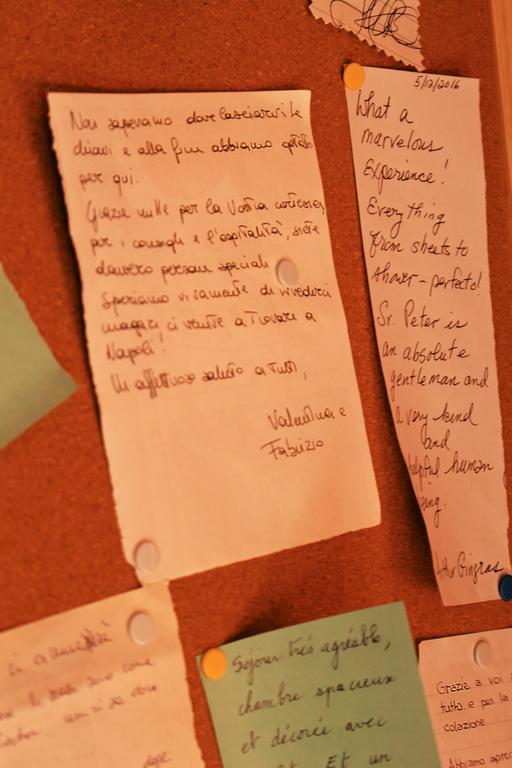 Non sapevamo dove lasciarvi le
chiavi e alla fine abbiamo optato
per qui.
Grazie mille per la Vostra cortesia,
per i consigli e l'ospitalità, siete
davvero persone speciali.
Speriamo vivamente di rivederci
magari ci venite a trovare a
Napoli!
Un affettuoso saluto a tutti,
Valentina e
Fabrizio
5/12/2016
What a
marvelous
experience!
Everything
from sheets to
shower - perfecto!
Sr. Peter is
an absolute
gentleman and
a very kind
and
helpful human
being.
Arthur Gingras
Séjour très agréable,
chambre spacieux
et décorée avec
Et un
Grazie a voi
tutto e per la
colazione
Abbiamo